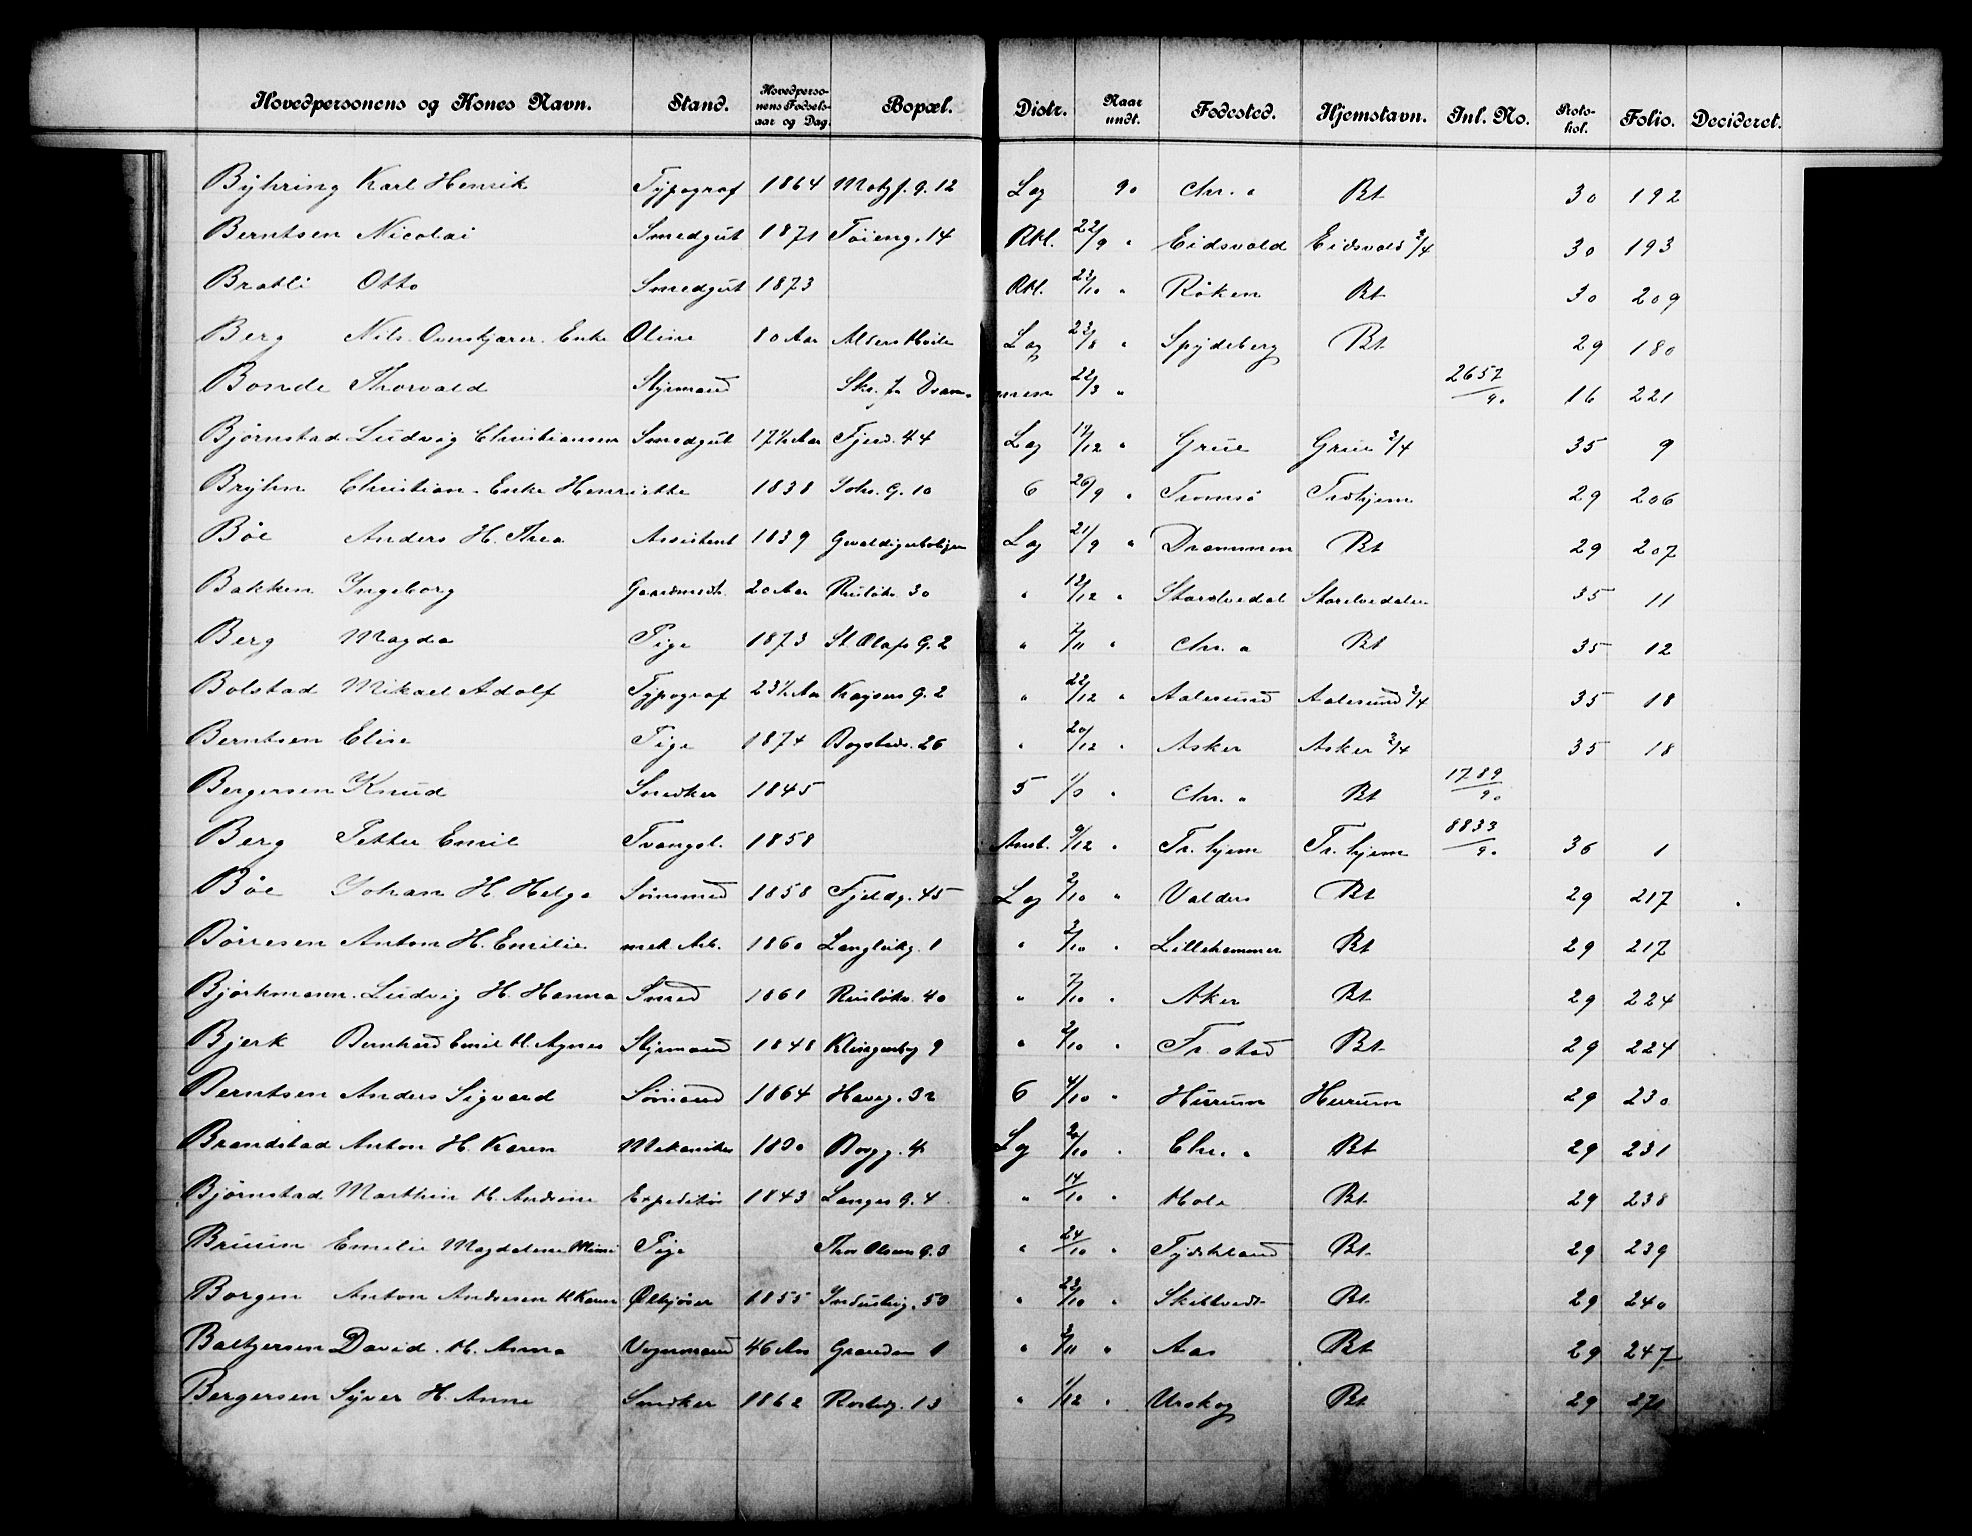 Hovedpersonens og Kones Navn. Stand. Hovedperso-nens Fødsels-aar og Dag. Bopæl. Distr. Naar undt. Fødested. Hjemstavn. Inl. No. Proto-kol. Folio. Decideret.
Byhring Karl Henrik Typograf 1864 Motzf. g. 12 Lag 90 Chr. a Bt 30 192
Berntsen Nicolai Smedgut 1871 Töieng. 14 Rkl. 22/9 " Eidsvold Eidsvold 3/4 30 193
Bratli Otto Smedgut 1873 Rkl. 23/10 " Røken Bt 30 209
Berg Nils. Enke Oline 80 Aar Alders Hvile Lag 23/8 " Spydeberg Bt 29 180
Bonde Thorvald Styrmand Skr. fr Drammen 22/3 " 2657/90 16 221
Bjørnstad Ludvig Christiansen Smedgut 17½ Aar Fjerd. 44 Lag 17/12 " Grue Grue 3/4 35 9
Bryhn Christian. Enke Henriette 1838 Johs. G. 10 6 26/9 " Tromsø Trdhjem 29 206
Böe Anders H. Thea Assistent 1839 Lag 21/9 " Drammen Bt 29 207
Bakken Ingeborg 20 Aar Ruseløkv. 30 " 12/12 " Storelvedal Storelvedalen 35 11
Berg Magda Pige 1873 St Olafs G. 2 " 7/11 " Chr. a Bt 35 12
Bolstad Mikael Adolf Typograf 23½ Aar Kaysers G. 2 " 22/12 " Aalesund Aalesund 3/4 35 18
Berntsen Elise Pige 1874 Bogstadv. 26 " 20/12 " Asker Asker 3/4 35 18
Bergersen Knud Snedker 1845 5 " Chr. a Bt 1789/90
Berg Petter Emil Tvangsl. 1858 Anst. 9/12 " Tr. hjem Tr. hjem 8833/90 36 1
Böe Johan H. Helga 1858 Fjeldg. 45 Lag 2/10 " Valders Bt 29 217
Börresen Anton H. Emilie mek Arb. 1860 Langvikg. 1 " 2/10 " Lillehammer Bt 29 217
Björkmann. Ludvig H. Hanna Smed 1861 Ruseløkv. 40 " 7/10 " Aker Bt 29 224
Bjerk Bernhard Emil H. Agnes Styrmand 1848 Klingenbg 9 " 2/10 " Fr. stad Bt 29 224
Berntsen Anders Sigvard Sömand 1864 Havg. 32 6 4/10 " Hurum Hurum 29 230
Brandstad Anton H. Karen Mekaniker Bogg. 4 Lag 20/10 " Chr. a Bt 29 231
Bjørnstad Marthin H. Andrine Expeditør 1843 Langes G. 4 " 14/10 " Hole Bt 29 238
Bruun Emilie Magdalene Mimi Pige Thv Olsens G. 3 " 24/10 " Tydskland Bt 29 239
Borgen Anton Andresen H Karen Ølkjører 1855 Industrig. 50 " 22/10 " Skibtvedt Bt 29 240
Baltzersen David. H. Anna Vognmand 46 Aar Grønden 1 " 3/11 " Aas Bt 29 247
Bergersen Syver H. Anne Snedker 1862 Rostedg. 13 " 1/12 " Urskog Bt 29 271